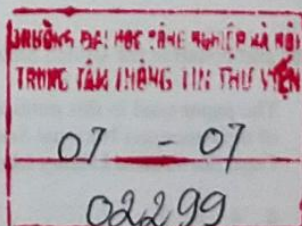 TRƯỜNG ĐẠI HỌC CÔNG NGHIỆP HÀ NỘI
TRUNG TÂM THÔNG TIN THƯ VIỆN
07 - 07
02299